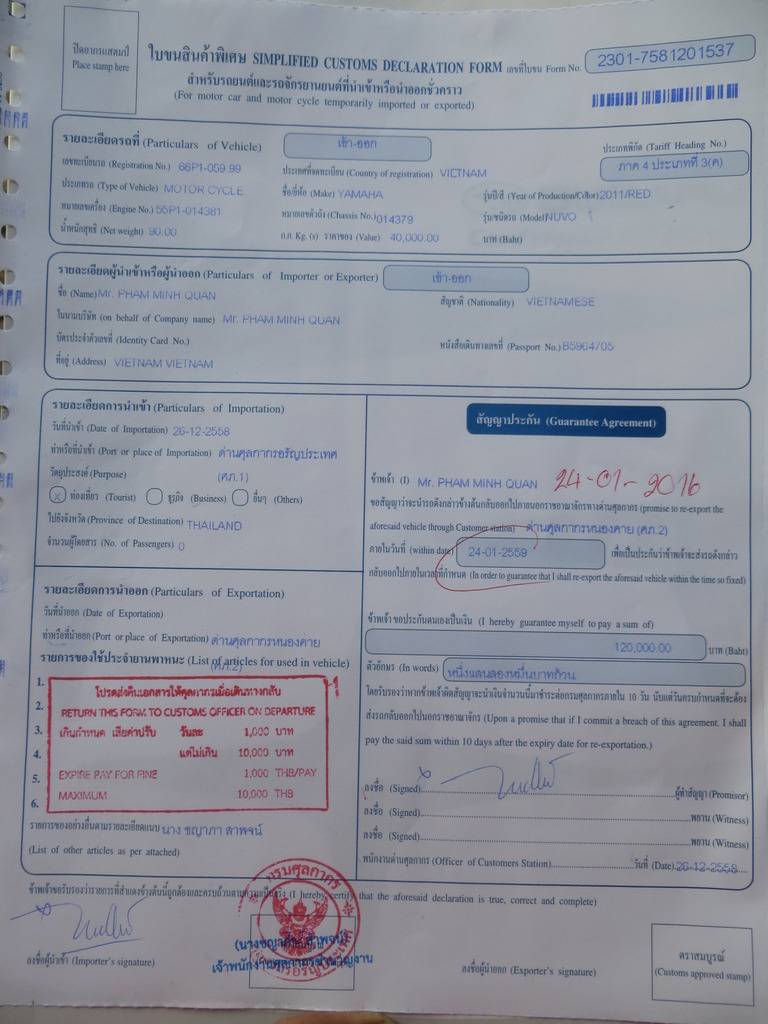 ปิดอากรแสตมป์
Place stamp here
ใบขนสินค้าพิเศษ SIMPLIFIED CUSTOMS DECLARATION FORM เลขที่ใบขน Form No. 2301-7581201537
สำหรับรถยนต์และรถจักรยานยนต์ที่นำเข้าหรือนำออกชั่วคราว
(For motor car and motor cycle temporarily imported or exported)
รายละเอียดรถที่ (Particulars of Vehicle) เข้า-ออก ประเภทพิกัด (Tariff Heading No.)
เลขทะเบียนรถ (Registration No.) 66P1-059.99 ประเทศที่จดทะเบียน (Country of registration) VIETNAM ภาค 4 ประเภทที่ 3(ค)
ประเภทรถ (Type of Vehicle) MOTOR CYCLE ชื่อ/ยี่ห้อ (Make) YAMAHA รุ่นปี/สี (Year of Production/Collor) 2011/RED
หมายเลขเครื่อง (Engine No.) 55P1-014381 หมายเลขตัวถัง (Chassis No.) 014379 รุ่น/ชนิดรถ (Model) NUVO 1
น้ำหนักสุทธิ (Net weight) 90.00 ก.ก. Kg. (s) ราคาของ (Value) 40,000.00 บาท (Baht)
รายละเอียดผู้นำเข้าหรือผู้นำออก (Particulars of Importer or Exporter) เข้า-ออก
ชื่อ (Name) Mr. PHAM MINH QUAN สัญชาติ (Nationality) VIETNAMESE
ในนามบริษัท (on behalf of Company name) Mr. PHAM MINH QUAN
บัตรประจำตัวเลขที่ (Identity Card No.) หนังสือเดินทางเลขที่ (Passport No.) B5964705
ที่อยู่ (Address) VIETNAM VIETNAM
รายละเอียดการนำเข้า (Particulars of Importation)
วันที่นำเข้า (Date of Importation) 26-12-2558
ท่าหรือที่นำเข้า (Port or place of Importation) ด่านศุลกากรอรัญประเทศ
วัตถุประสงค์ (Purpose) (ศภ.1)
x ท่องเที่ยว (Tourist) ธุรกิจ (Business) อื่นๆ (Others)
ไปยังจังหวัด (Province of Destination) THAILAND
จำนวนผู้โดยสาร (No. of Passengers) 0
รายละเอียดการนำออก (Particulars of Exportation)
วันที่นำออก (Date of Exportation)
ท่าหรือที่นำออก (Port or place of Exportation) ด่านศุลกากรหนองคาย
รายการของใช้ประจำยานพาหนะ (List of articles for used in vehicle)
(ศภ.2)
1.
2.
3.
4.
5.
6.
โปรดส่งคืนเอกสารให้ศุลกากรเมื่อเดินทางกลับ
RETURN THIS FORM TO CUSTOMS OFFICER ON DEPARTURE
เกินกำหนด เสียค่าปรับ วันละ 1,000 บาท
แต่ไม่เกิน 10,000 บาท
EXPIRE PAY FOR FINE 1,000 THB/PAY
MAXIMUM 10,000 THB
รายการของอย่างอื่นตามรายละเอียดแนบ นาง ชญาภา ลาพจน์
(List of other articles as per attached)
สัญญาประกัน (Guarantee Agreement)
ข้าพเจ้า (I) Mr. PHAM MINH QUAN 24-01-2016
ขอสัญญาว่าจะนำรถดังกล่าวข้างต้นกลับออกไปภายนอกราชอาณาจักรทางด่านศุลกากร (promise to re-export the
aforesaid vehicle through Customer station) ด่านศุลกากรหนองคาย (ศภ.2)
ภายในวันที่ (within date) 24-01-2559 เพื่อเป็นประกันว่าข้าพเจ้าจะส่งรถดังกล่าว
กลับออกไปภายในเวลาที่กำหนด (In order to guarantee that I shall re-export the aforesaid vehicle within the time so fixed)
ข้าพเจ้า ขอประกันตนเองเป็นเงิน (I hereby guarantee myself to pay a sum of)
120,000.00 บาท (Baht)
ตัวอักษร (In words) หนึ่งแสนสองหมื่นบาทถ้วน
โดยรับรองว่าหากข้าพเจ้าผิดสัญญาจะนำเงินจำนวนนี้มาชำระต่อกรมศุลกากรภายใน 10 วัน นับแต่วันครบกำหนดที่จะต้อง
ส่งรถกลับออกไปนอกราชอาณาจักร (Upon a promise that if I commit a breach of this agreement. I shall
pay the said sum within 10 days after the expiry date for re-exportation.)
ลงชื่อ (Signed) ผู้ทำสัญญา (Promisor)
ลงชื่อ (Signed) พยาน (Witness)
ลงชื่อ (Signed) พยาน (Witness)
พนักงานด่านศุลกากร (Officer of Customs Station) วันที่ (Date) 26-12-2558
ข้าพเจ้าขอรับรองว่ารายการที่แสดงข้างต้นนี้ถูกต้องและครบถ้วนตามความเป็นจริง (I hereby certify that the aforesaid declaration is true, correct and complete)
กรมศุลกากร
เจ้าพนักงานศุลกากรชำนาญงาน
ลงชื่อผู้นำเข้า (Importer's signature) ลงชื่อผู้นำออก (Exporter's signature)
ตราสมบูรณ์
(Customs approved stamp)